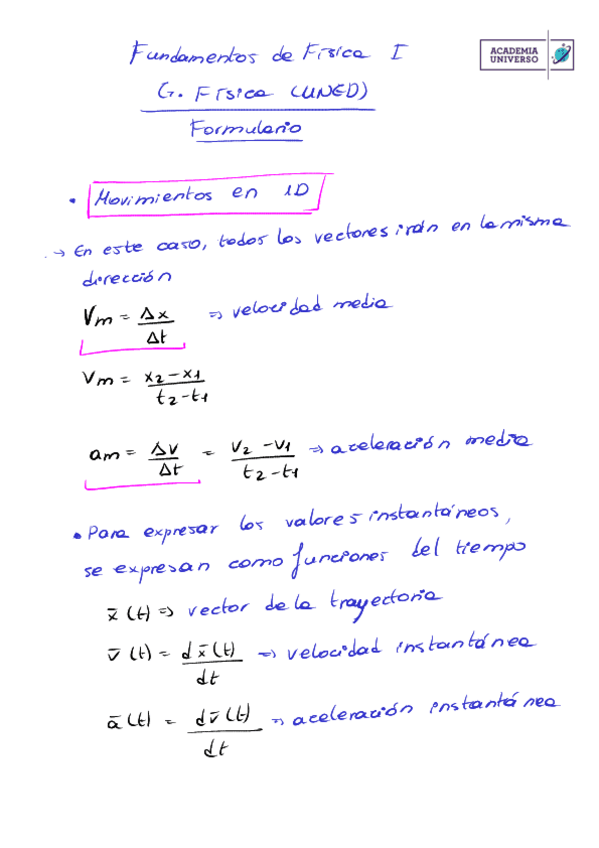 Fundamentos de Física I
ACADEMIA
UNIVERSO
G. Física (UNED)
Formulario
• Movimientos en 1D
→ En este caso, todos los vectores irán en la misma
dirección
Vm = Δx/Δt ⇒ velocidad media
Vm = x2-x1/t2-t1
am = Δv/Δt = v2-v1/t2-t1 ⇒ aceleración media
• Para expresar los valores instantáneos,
se expresan como funciones del tiempo
x̄(t) ⇒ vector de la trayectoria
v̄(t) = dx̄(t)/dt ⇒ velocidad instantánea
ā(t) = dv̄(t)/dt ⇒ aceleración instantánea